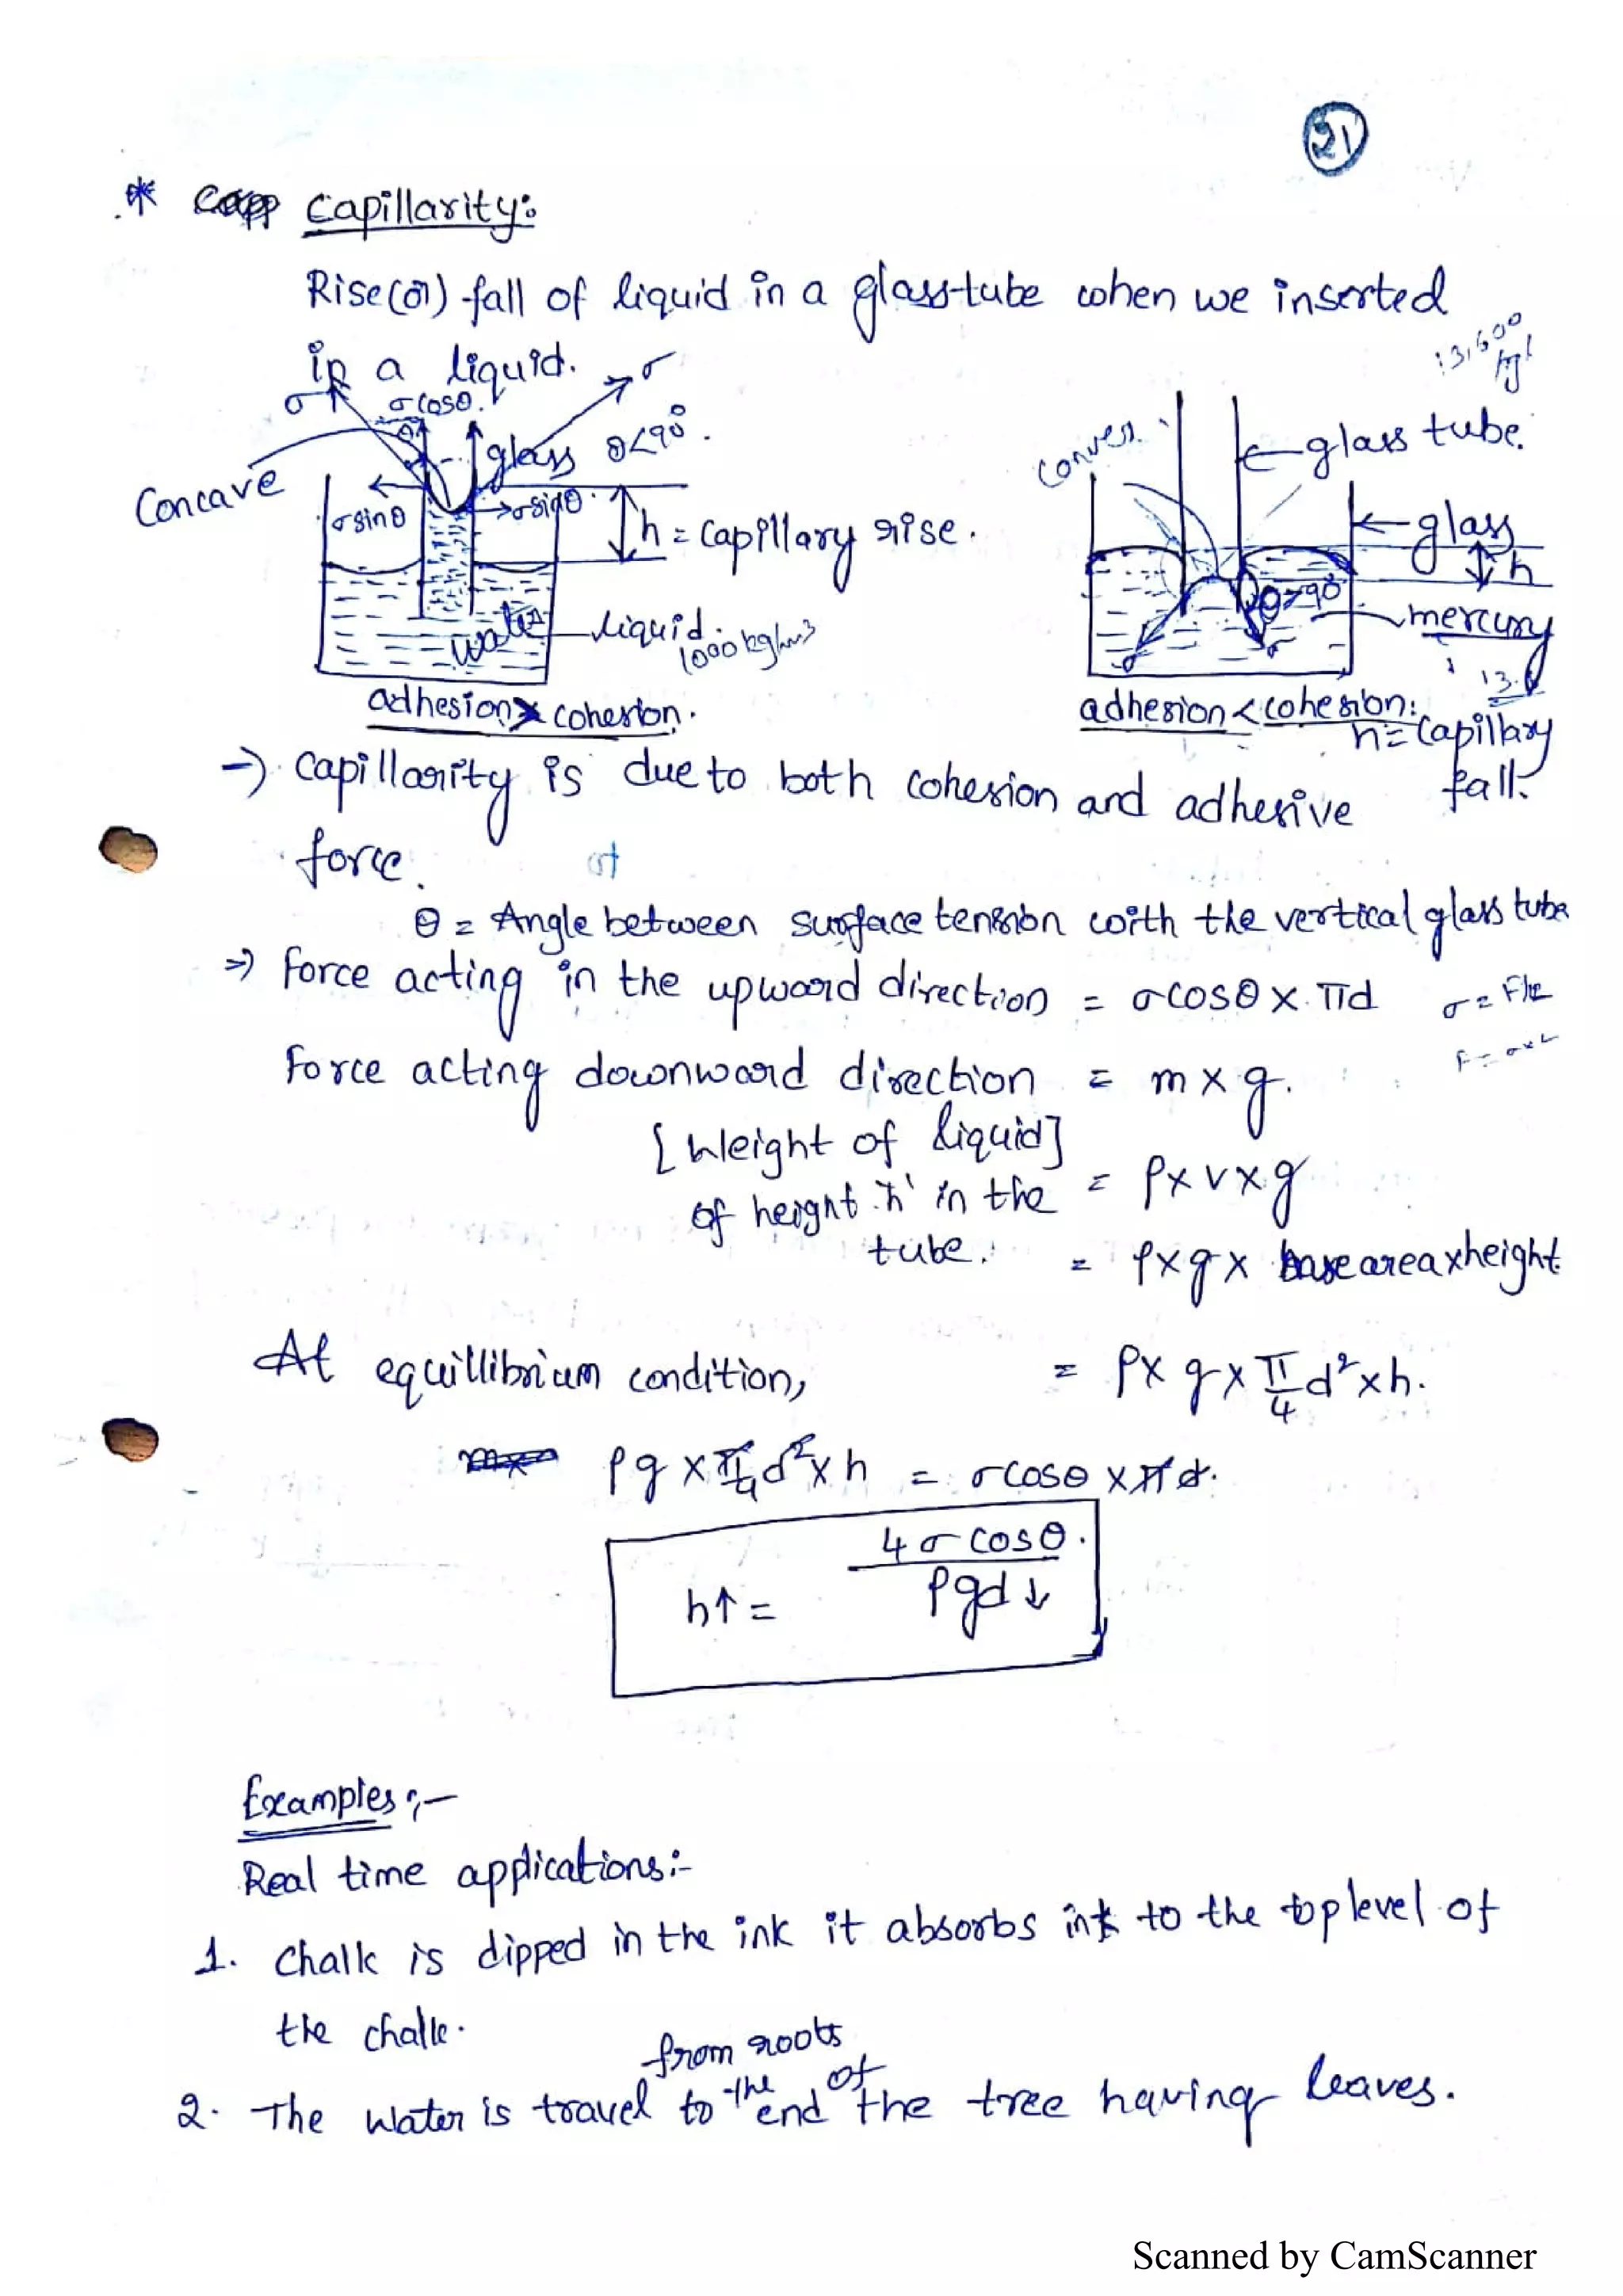 21
* Capillarity:
Rise (or) fall of liquid in a glass tube when we inserted
in a liquid.
13,600
σ
σ cosθ.
σ
θ
glass
θ<90°.
Concave
σ sinθ
σ sinθ
h = capillary rise.
water
liquid.
1000 kg/m3
adhesion > cohesion.
convex.
glass tube.
glass
h
θ>90°
mercury
13.6
σ
σ
adhesion < cohesion:
h = Capillary
fall.
→ Capillarity is due to both cohesion and adhesive
force.
θ = Angle between surface tension with the vertical glass tube
⇒ Force acting in the upward direction = σ cosθ × πd
σ = F/L
F = σ×L
Force acting downward direction = m × g.
[Weight of liquid]
of height 'h' in the
tube.
= ρ × v × g
= ρ × g × base area × height
At equillibrium condition,
= ρ × g × π/4 d² × h.
ρg × π/4 d² × h = σ cosθ × πd.
h↑ = 4σ cosθ. / ρgd↓
Examples :-
Real time applications :-
1. Chalk is dipped in the ink it absorbs ink to the top level of
the chalk.
2. The water is travel from roots to the end of the tree having leaves.
Scanned by CamScanner